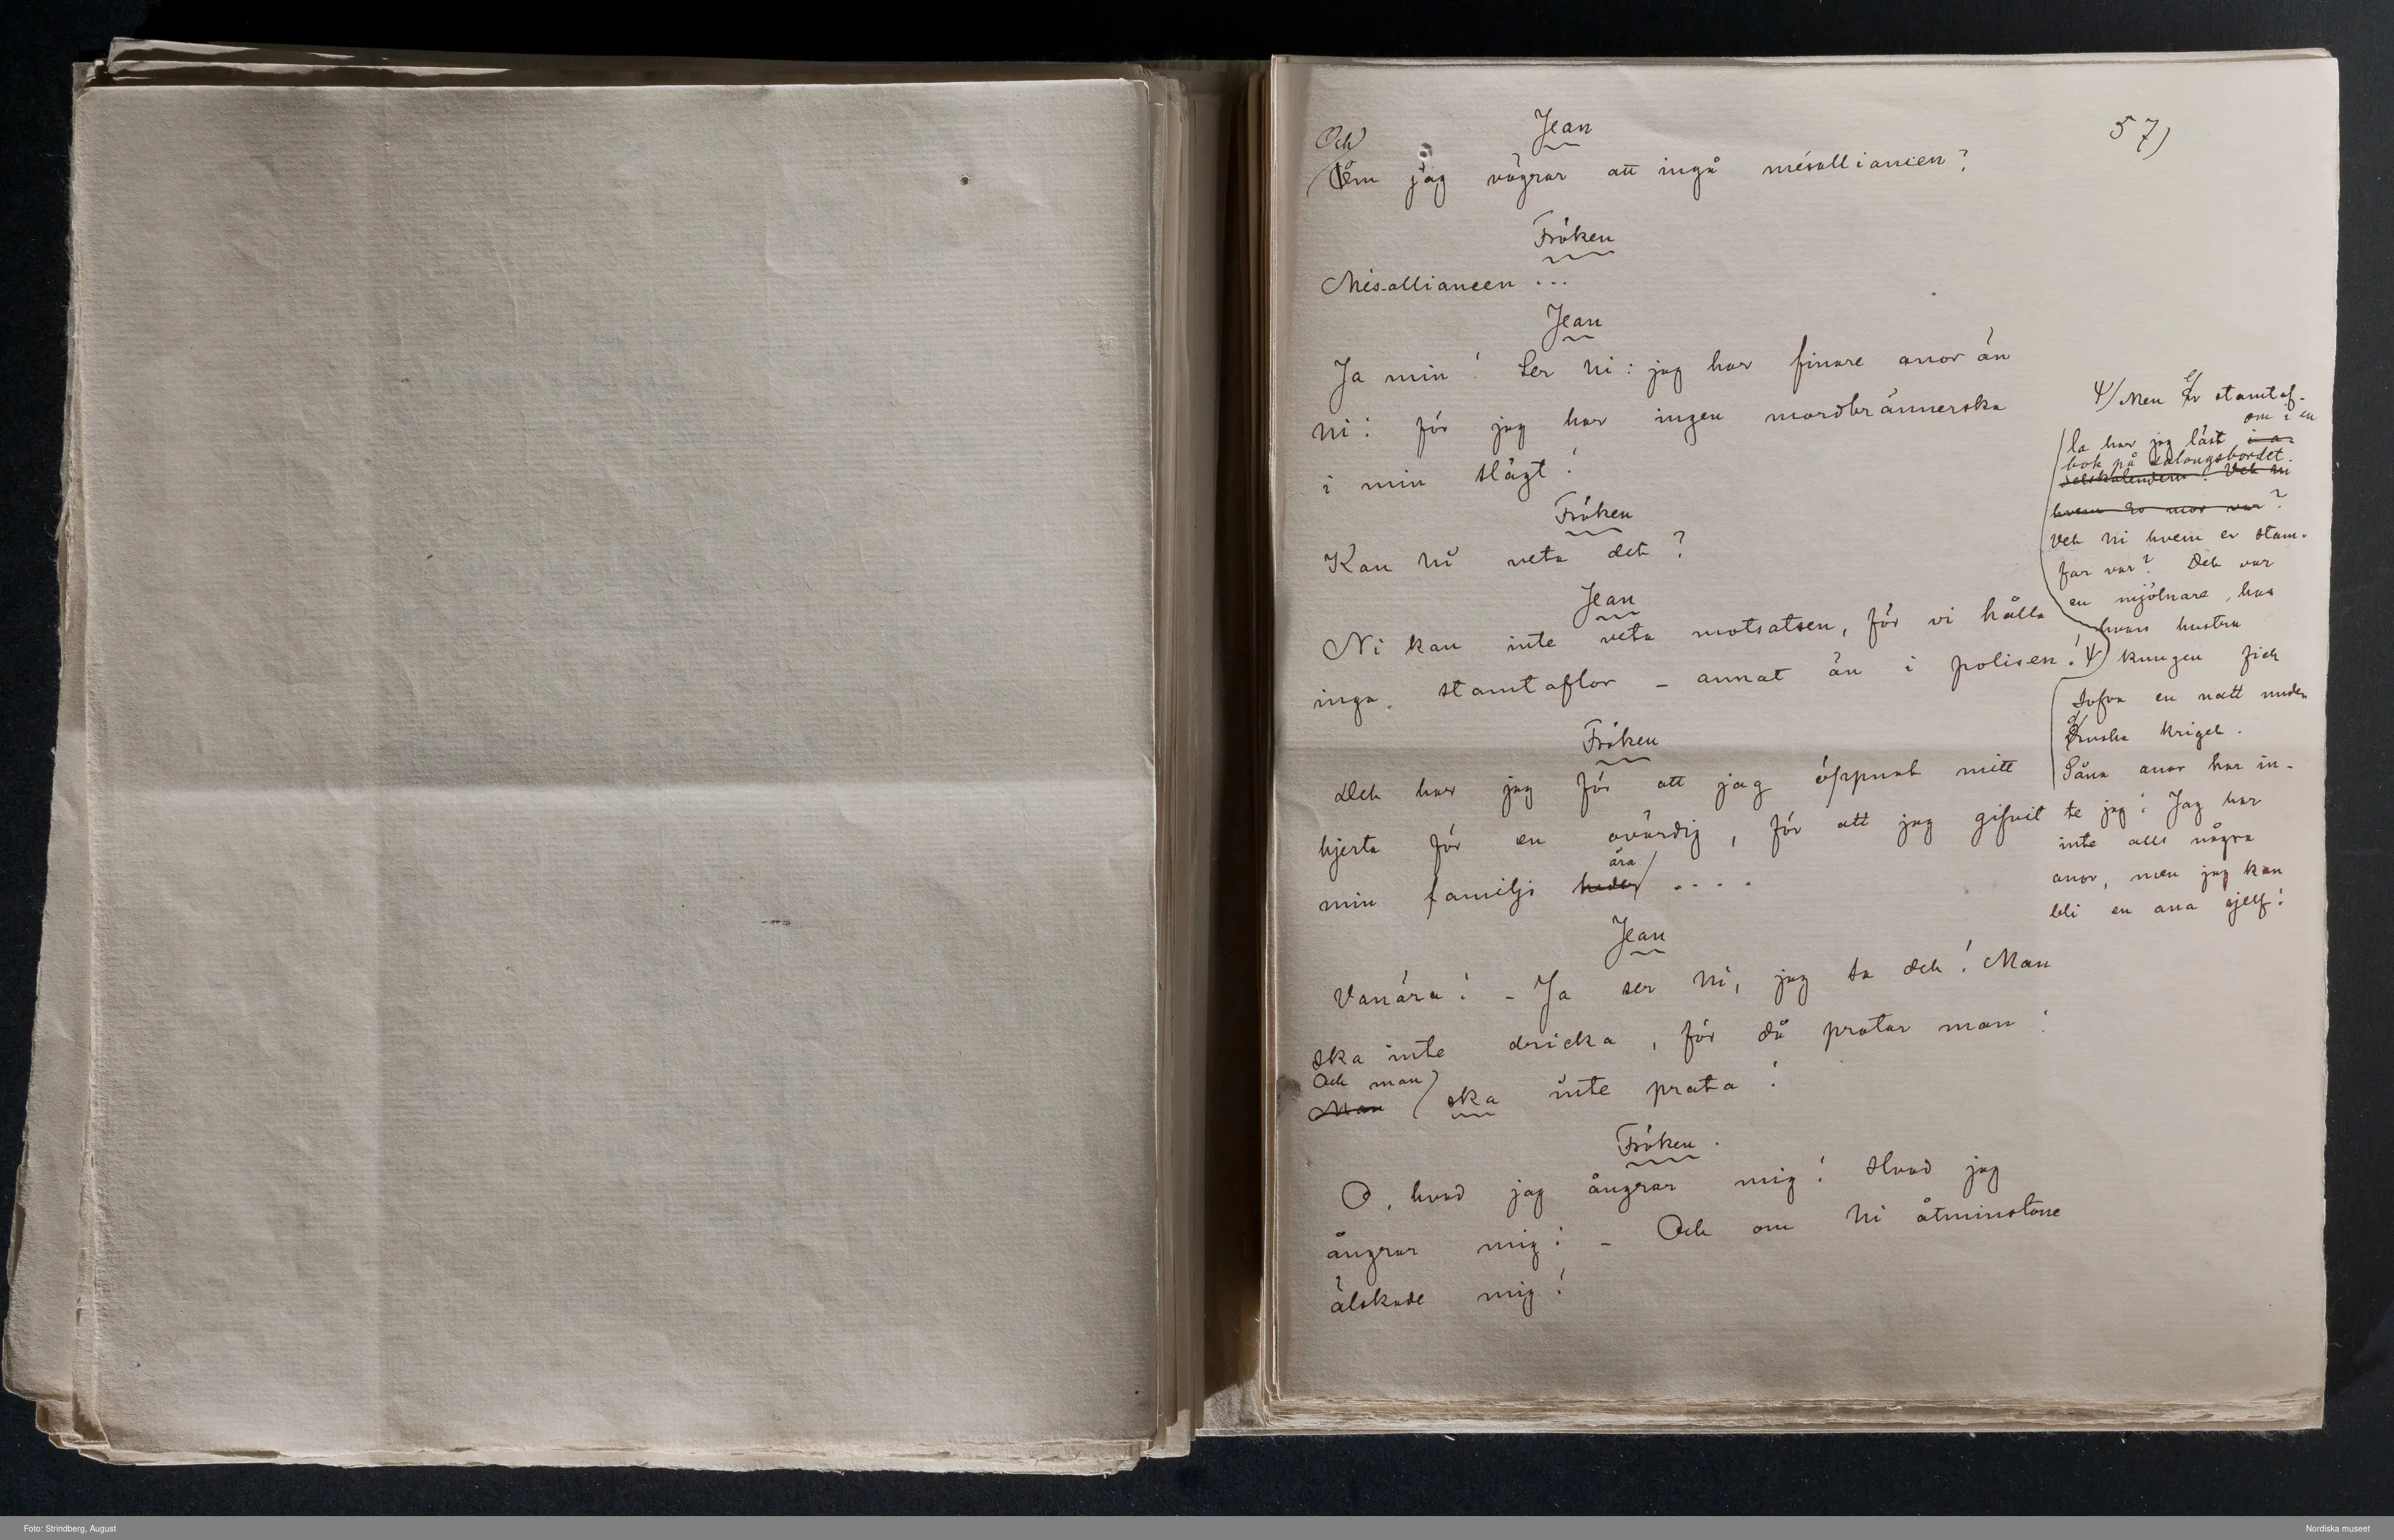 57)
Jean
Och
Om jag vägrar att ingå mésalliancen?
Fröken
Mésalliancen ...
Jean
Ja min! Ser Ni: jag har finare anor än
Ni: för jag har ingen mordbrännerska
i min slägt!
Fröken
Kan Ni veta det?
Jean
Ni kan inte veta motsatsen, för vi hålla
inga stamtaflor – annat än i polisen! Ψ)
Fröken
Det har jag för att jag öppnat mitt
hjerta för en ovärdig, för att jag gifvit
ära
min familjs heder ....
Jean
Vanära! – Ja ser Ni, jag sa det! Man
ska inte dricka, för då pratar man!
Och man
Man ska inte prata!
Fröken.
O, hvad jag ångrar mig! Hvad jag
ångrar mig! – Och om Ni åtminstone
älskade mig!
Ψ/ Men Er stamtaf-
om i en
la har jag läst i a-
bok på salongsbordet.
delskalendern! Vet Ni
hvem Er mor var?
Vet Ni hvem er stam-
far var? Det var
en mjölnare, hos
hvars hustru
kungen fick
sofva en natt under
danska kriget.
Såna anor har in-
te jag! Jag har
inte alls några
anor, men jag kan
bli en ana sjelf!
Foto: Strindberg, August
Nordiska museet